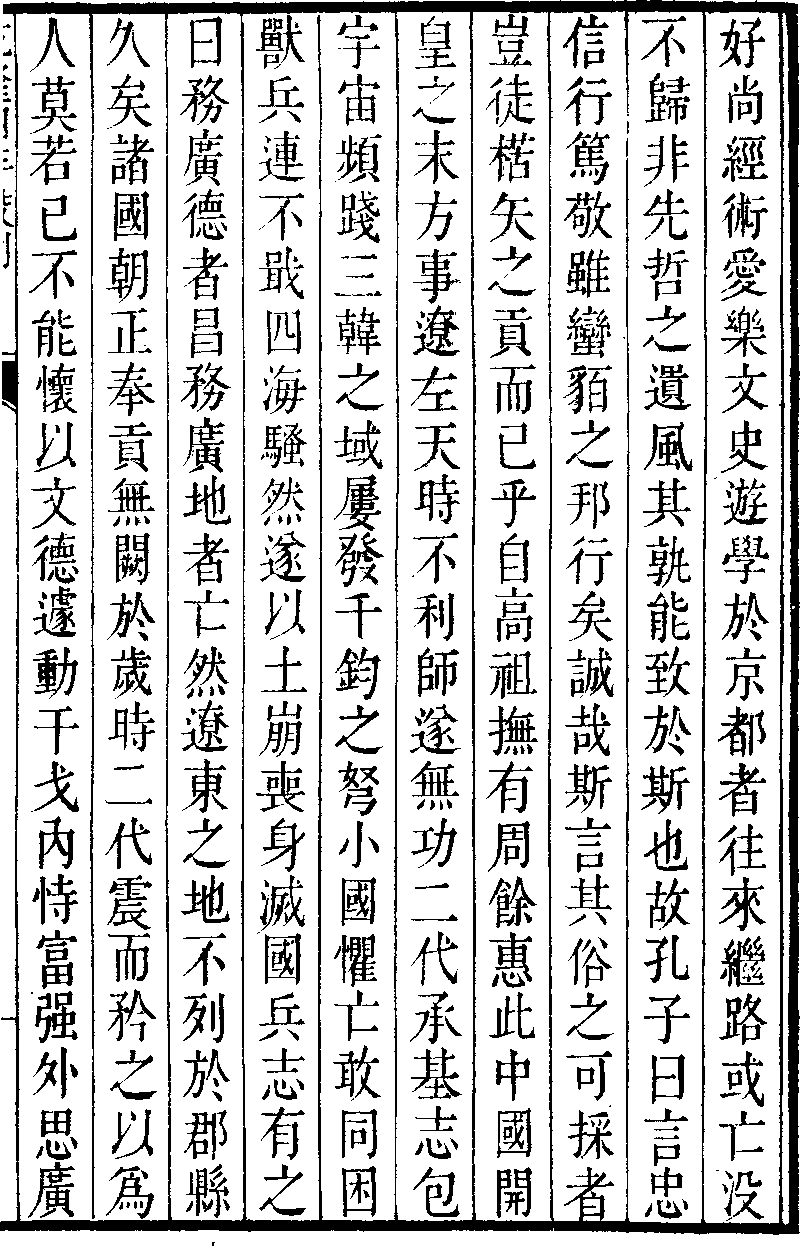 好尚經術愛樂文史遊學於京都者往來繼路或亡没
不歸非先哲之遺風其孰能致於斯也故孔子曰言忠
信行篤敬雖蠻貊之邦行矣誠哉斯言其俗之可採者
豈徒楛矢之貢而已乎自高祖撫有周餘惠此中國開
皇之末方事遼左天時不利師遂無功二代承基志包
宇宙頻踐三韓之域屢發千鈞之弩小國懼亡敢同困
獸兵連不戢四海騷然遂以土崩喪身滅國兵志有之
曰務廣德者昌務廣地者亡然遼東之地不列於郡縣
久矣諸國朝正奉貢無闕於歲時二代震而矜之以爲
人莫若已不能懷以文德遽動干戈內恃富强外思廣